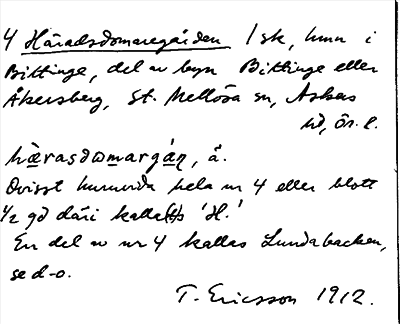 4 Häradsdomaregården 1 sk, hmn i
Bittinge, del av byn Bittinge eller
Åkersberg, St. Mellösa sn, Askers
hd, Ör. l.
hæ̀rasdomargán, ä.
Ovisst huruvida hela nr 4 eller blott
1/2 gd däri kalla(t)s 'H.'
En del av nr 4 kallas Lundabacken,
se d-o.
T. Ericsson 1912.